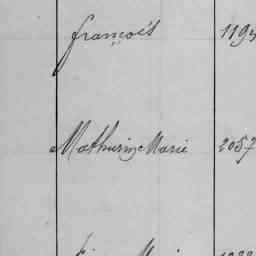 françois 1193
Mathurin Marie 2057